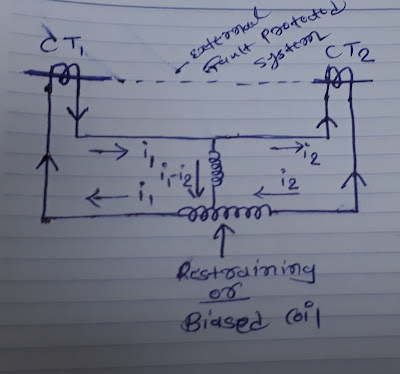 External
fault protected
system
CT1
CT2
i1
i2
i1-i2
i1
i2
Restraining
or
Biased coil